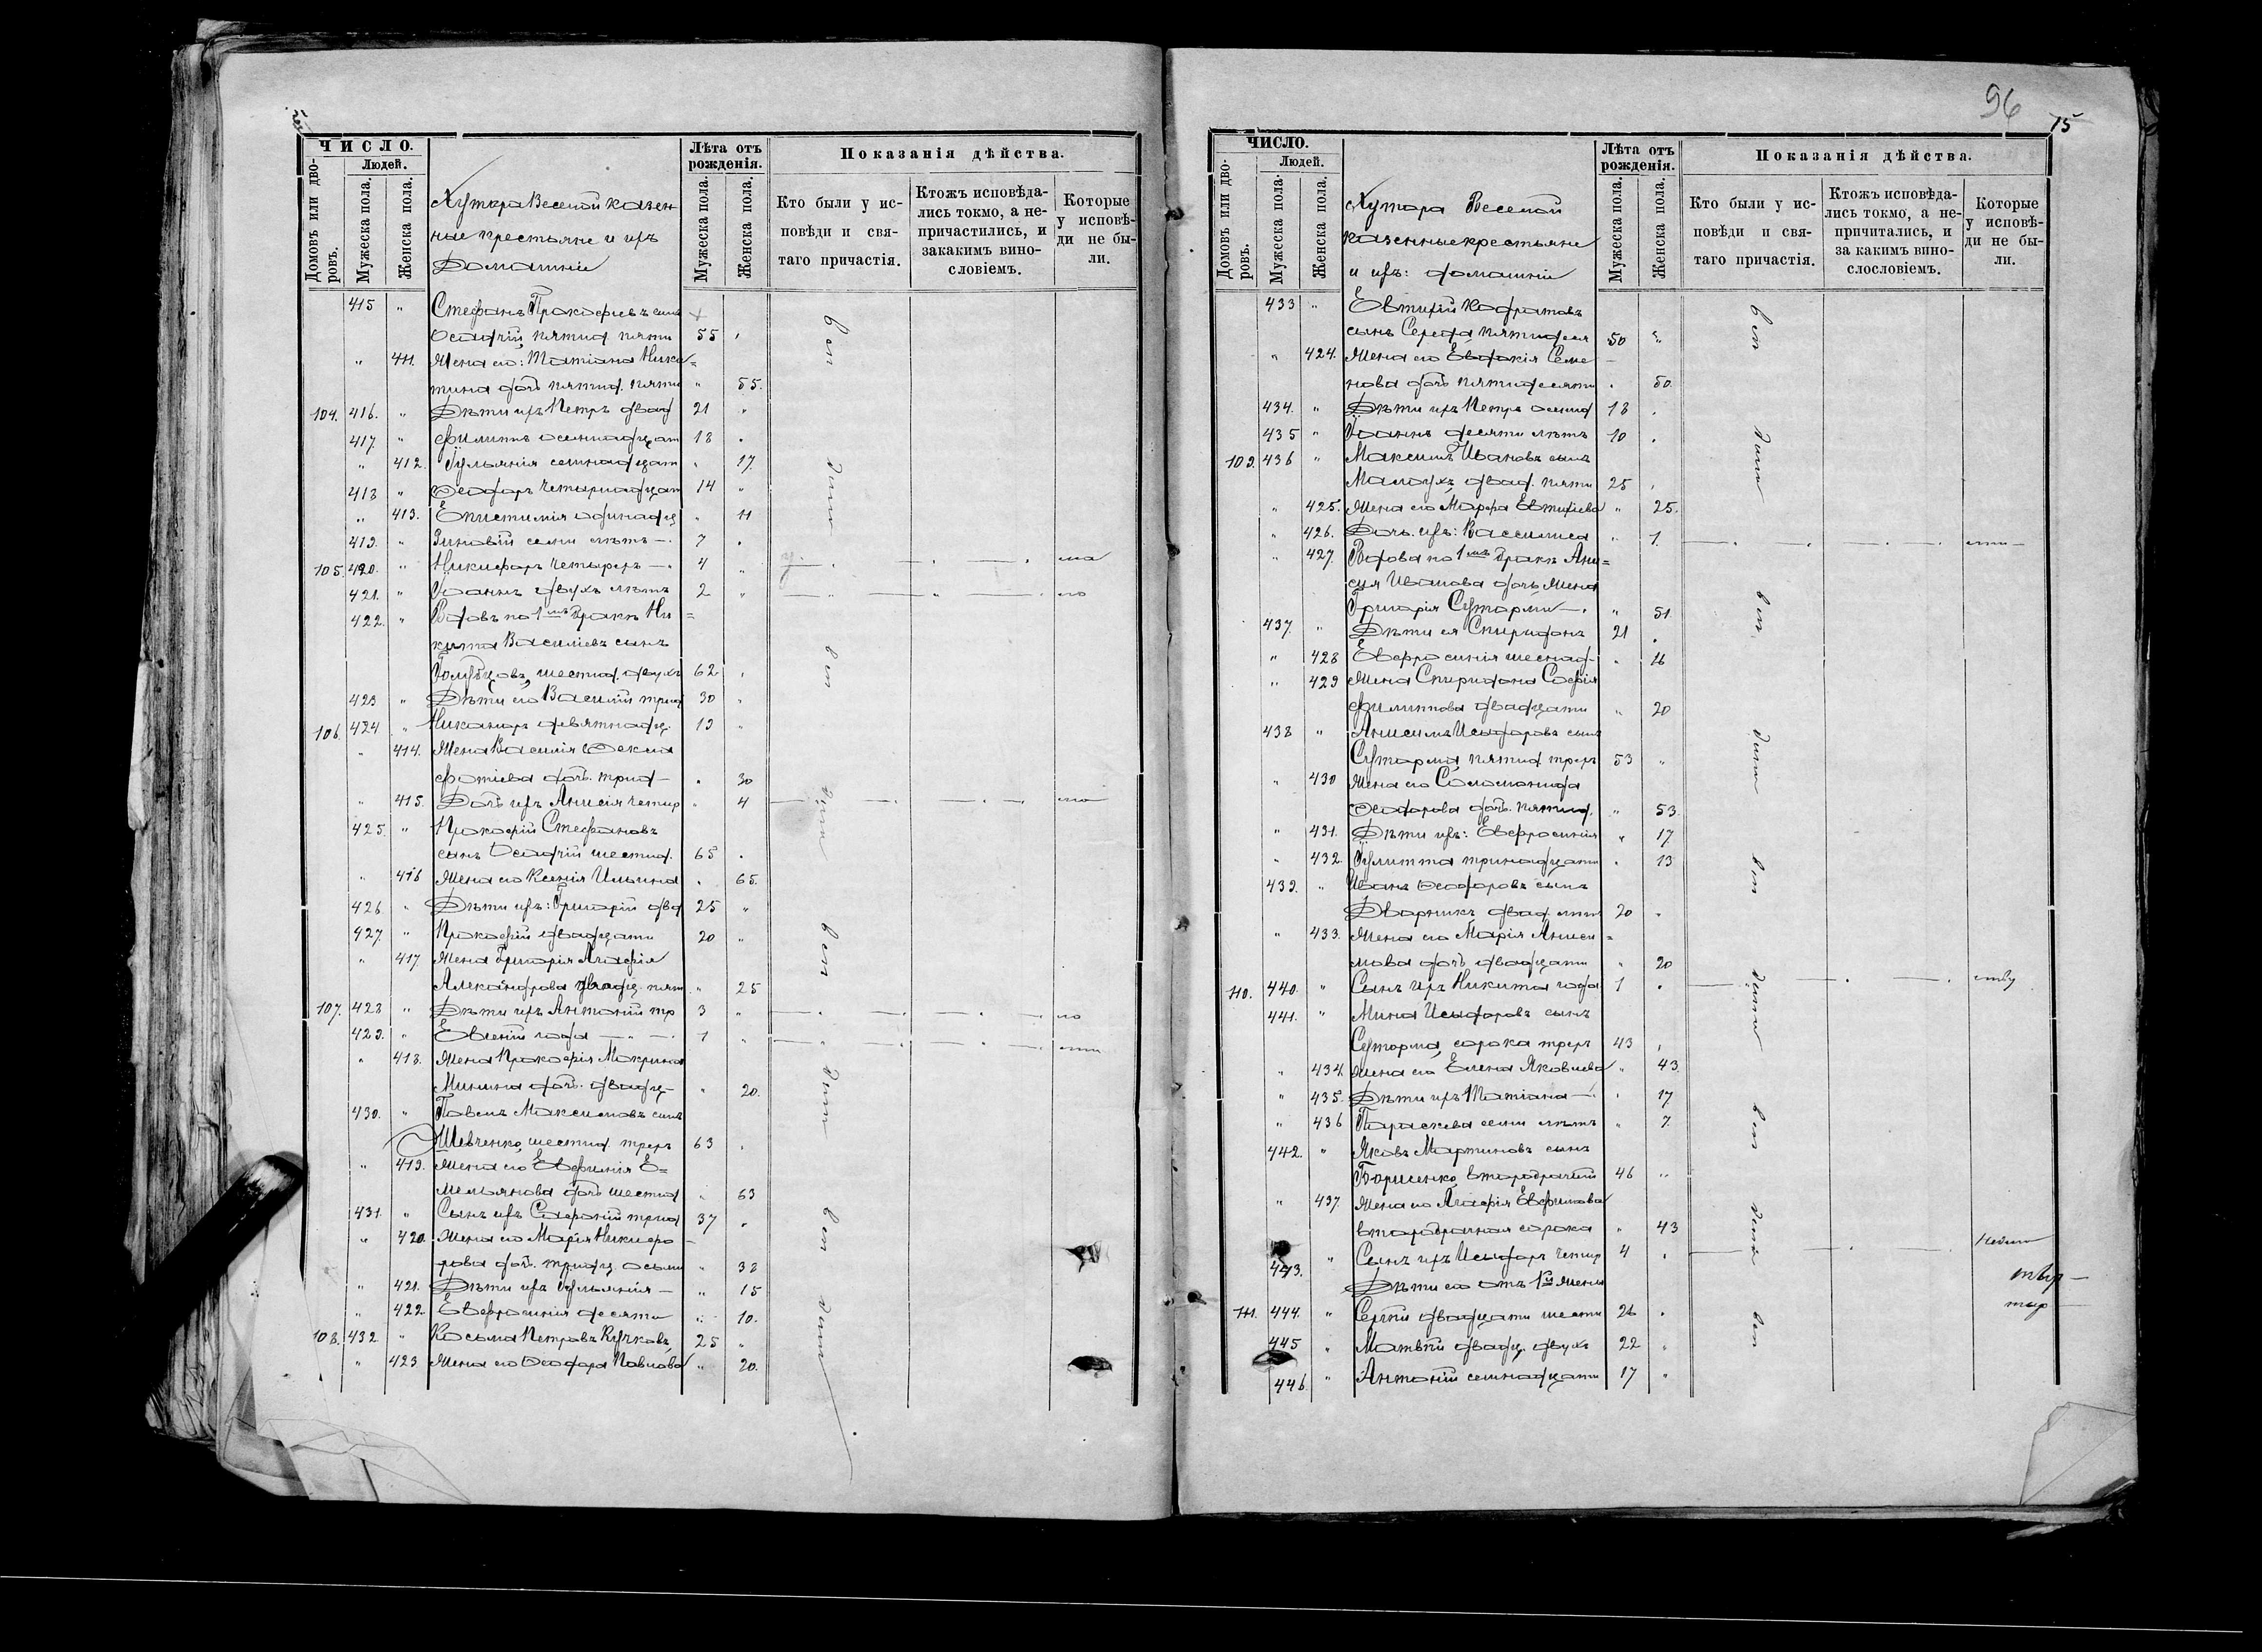 ЧИСЛО.
Людей.
Домовъ или дво-
ровъ.
Мужеска пола.
Женска пола.
Хутора Веселой казен
ные крестьяне и ихъ
Домашніи
Лѣта отъ
рожденія.
Мужеска пола.
Женска пола.
Показанія дѣйства.
Кто были у ис-
повѣди и свя-
таго причастія.
Ктожъ исповѣда-
лись токмо, а не-
причастились, и
закакимъ вино-
словіемъ.
Которые
у исповѣ-
ди не бы-
ли.
415 " Стефанъ Прокофіевъ сынъ
Осадчій пятид. пяти 55
" 411. Жена его: Татіана Ники=
тина дочь пятид. пяти " 55.
104. 416. " Дѣти ихъ Петръ двад 21 "
417 " Филиппъ осемнадцат 18 "
" 412. Іульянія семнадцат " 17
418 " Ѳеодоръ четырнадцат 14 "
" 413. Епистимія одинадц " 11
419. " Зиновій семи лѣтъ —. 7
105. 420. " Никифоръ четырехъ —. 4 "
421. " Іоаннъ двухъ лѣтъ 2 "
422. " Вдовъ по 1мъ бракѣ Ни=
кита Василіевъ сынъ
Голубцовъ, шестид. двухъ 62
423 " Дѣти его Василій трид 30 "
106. 424 " Никаноръ девятнадц. 19 "
" 414. Жена Василія Ѳекла
Фотіева дочь. трид— " 30
" 415. Дочь ихъ Анисія четыр " 4
425. " Прокофій Стефановъ
сынъ Осадчій шестид. 65
" 416 Жена его Ксенія Ильина " 65.
426. " Дѣти ихъ: Григорій двад 25 "
427. " Прокофій двадцати 20 "
" 417 Жена Григорія Агафія
Александрова двадц. пят " 25
107. 428 " Дѣти ихъ Антоній тр 3 "
429. " Евгеній года — 1 "
" 418. Жена Прокофія Макрина
Минина дочь. двадц— " 20.
430. " Павелъ Максимовъ сынъ
Шевченко, шестид. трехъ 63
" 419. Жена его Евфимія Е=
мельянова дочь шестид " 63
431. " Сынъ ихъ Софроній трид 37 "
" 420. Жена его Марія Никифо
рова дочь. тридц осьми " 38
" 421. Дѣти ихъ Іульянія — " 15
" 422 Евфросинія десяти " 10.
108. 432 " Косьма Петровъ Кучковъ 25 "
" 423 Жена его Ѳеодора Павлова " 20.
96
15
ЧИСЛО.
Людей.
Домовъ или дво-
ровъ.
Мужеска пола.
Женска пола.
Хутора Веселой
казенные крестьяне
и ихъ: домашніи
Лѣта отъ
рожденія.
Мужеска пола.
Женска пола.
Показанія дѣйства.
Кто были у ис-
повѣди и свя-
таго причастія.
Ктожъ исповѣда-
лись токмо, а не-
причитались, и
за какимъ вино-
слословіемъ.
Которые
у исповѣ-
ди не бы-
ли.
433 " Евтихій Кодратовъ
сынъ Середа пятидеся 50 "
" 424. Жена его Евдокія Семе
нова дочь пятидесяти " 50.
434. " Дѣти ихъ Петръ осемнад 18
435 " Іоаннъ десяти лѣтъ 10
109. 436 " Максимъ Ивановъ сынъ
двад. пяти 25
" 425. Жена его Марфа Евтихіева " 25.
" 426. Дочь. ихъ: Вассилиса " 1.
" 427. Вдова по 1мъ бракѣ Ани=
сія Иванова дочь Жена
Григорія Сутормы —. " 51
437. " Дѣти ея Спиридонъ 21
" 428 Евфросинія шеснад- " 16
" 429 Жена Спиридона Софія
Филиппова двадцати " 20
438 " Анисимъ Исидоровъ сынъ
Суторма, пятид трехъ 53 "
" 430 Жена его Соломонида
Ѳеодорова дочь. пятид. " 53
" 431. Дѣти ихъ: Евфросинія " 17
" 432. Іулитта тринадцати " 13
439. " Иванъ Ѳеодоровъ сынъ
Дварникъ двад. лѣтъ 20 "
" 433. Жена его Марія Аниси=
мова дочь двадцати " 20
110. 440. " Сынъ ихъ Никита года 1 "
441. " Мина Исидоровъ сынъ
Суторма, сорока трехъ 43
" 434. Жена его Елена Яковлева " 43.
" 435. Дѣти ихъ Татіана — " 17
" 436 Параскева семи лѣтъ " 7.
442. " Яковъ Мартиновъ сынъ
Борисенко, второбрачній 46 "
" 437. Жена его Агафія Евфимова
второбрачная сорока " 43
443. " Сынъ ихъ Исидоръ четыр 4 "
Дѣти его отъ 1й жены
111. 444. " Сергій двадцати шести 26 "
445 " Матвѣй двадц. двухъ 22 "
446. " Антоній семнадцати 17 "